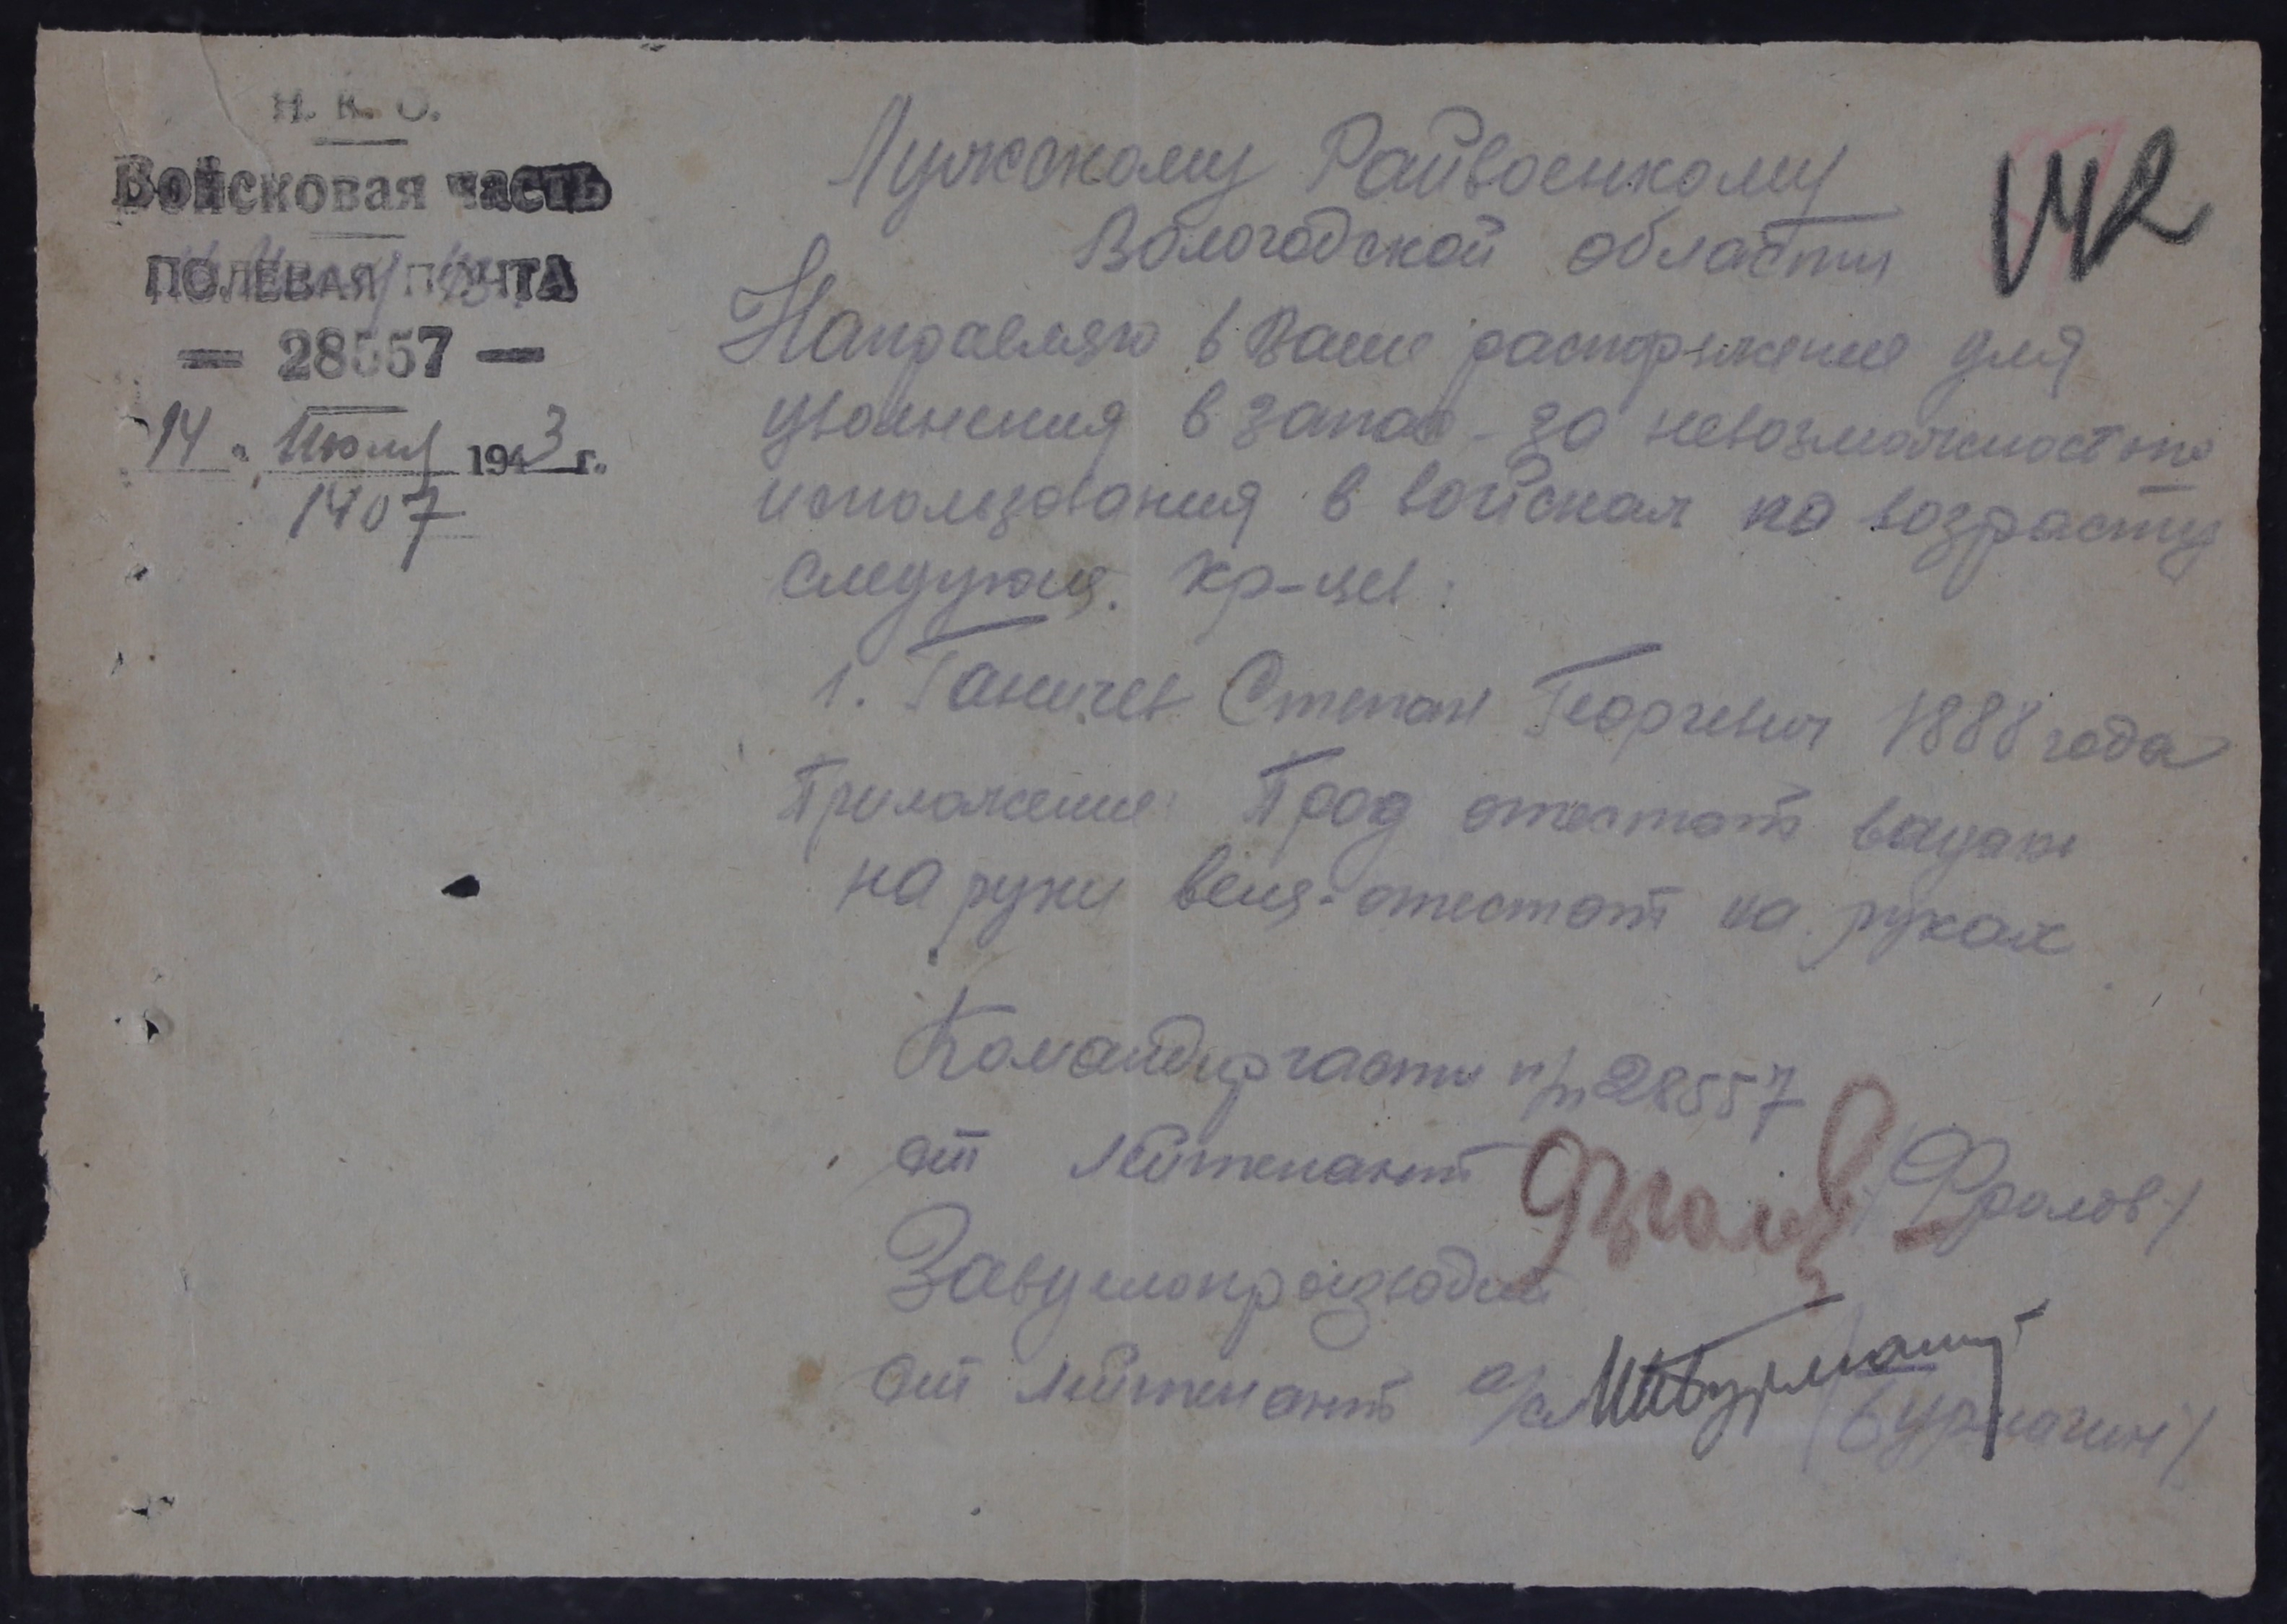 Н. К. О.
Войсковая часть
ПОЛЕВАЯ ПОЧТА
— 28557 —
14 " Июля 1943 г.
1407
142
Лужскому Райвоенкому
Вологодской области
Направляю в Ваше распоряжение для
увольнения в запас - за невозможностью
использования в войсках по возрасту
следующ. кр-цев:
1. Ганичев Степан Георгиевич 1888 года
Приложение: Прод атестат выдан
на руки вещ-атестат на руках
Командир части п/п 28557
ст лейтенант /Фролов/
Завделопроизводст
ст лейтенант а/с /Бурмагин/